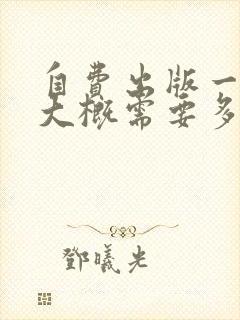 自费出版一
大概需要多
鄧曦光